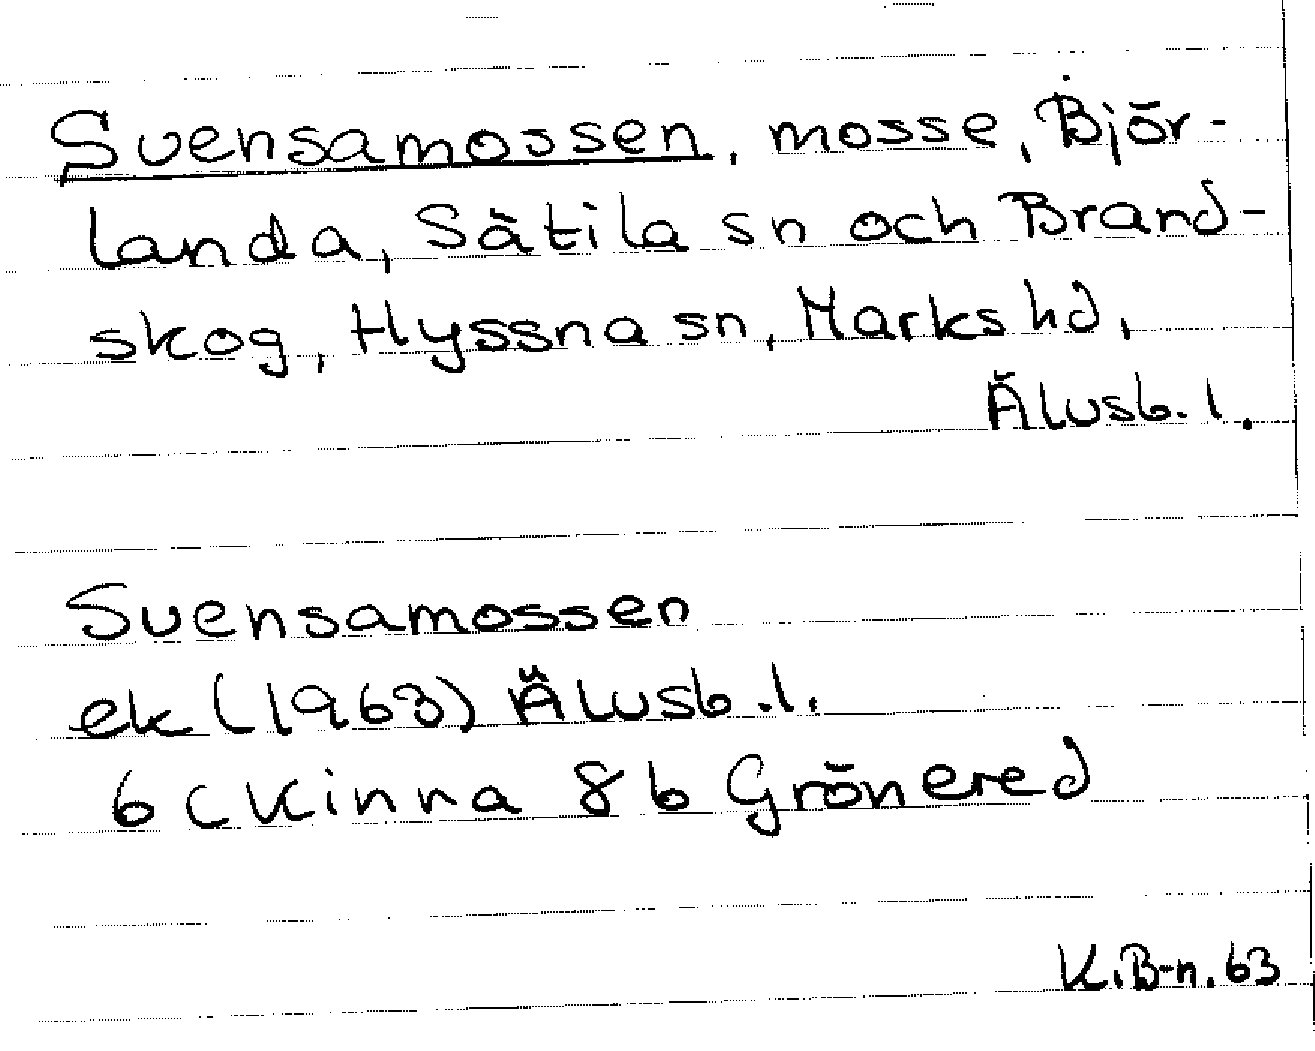 Svensamossen, mosse, Björ-
landa, Sätila sn och Brand-
skog, Hyssna sn, Marks hd,
Älvsb. l.
Svensamossen
ek (1963) Älvsb. l.
6 C Kinna 8 b Grönered
K.B-n. 63